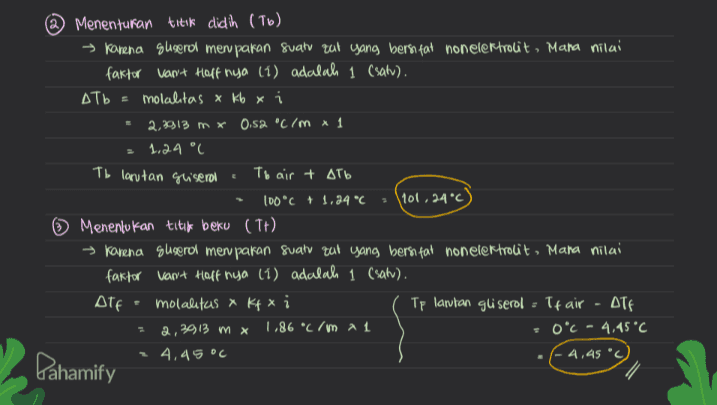 ② Menentukan titik didih (Tb)
→ Karena gliserol merupakan suatu zat yang bersifat nonelektrolit, Maka nilai
faktor Van't Hoff nya (i) adalah 1 (satu).
ΔTb = molalitas x Kb x i
= 2,3913 m x 0,52 °C/m x 1
= 1,24 °C
Tb larutan gliserol = Tb air + ΔTb
= 100°C + 1,24 °C = 101,24°C
③ Menentukan titik beku (Tf)
→ Karena gliserol merupakan suatu zat yang bersifat nonelektrolit, Maka nilai
faktor Van't Hoff nya (i) adalah 1 (satu).
ΔTf = molalitas x Kf x i
= 2,3913 m x 1,86 °C/m x 1
= 4,45 °C
Tf larutan gliserol = Tf air - ΔTf
= 0°C - 4,45°C
= -4,45 °C
Pahamify